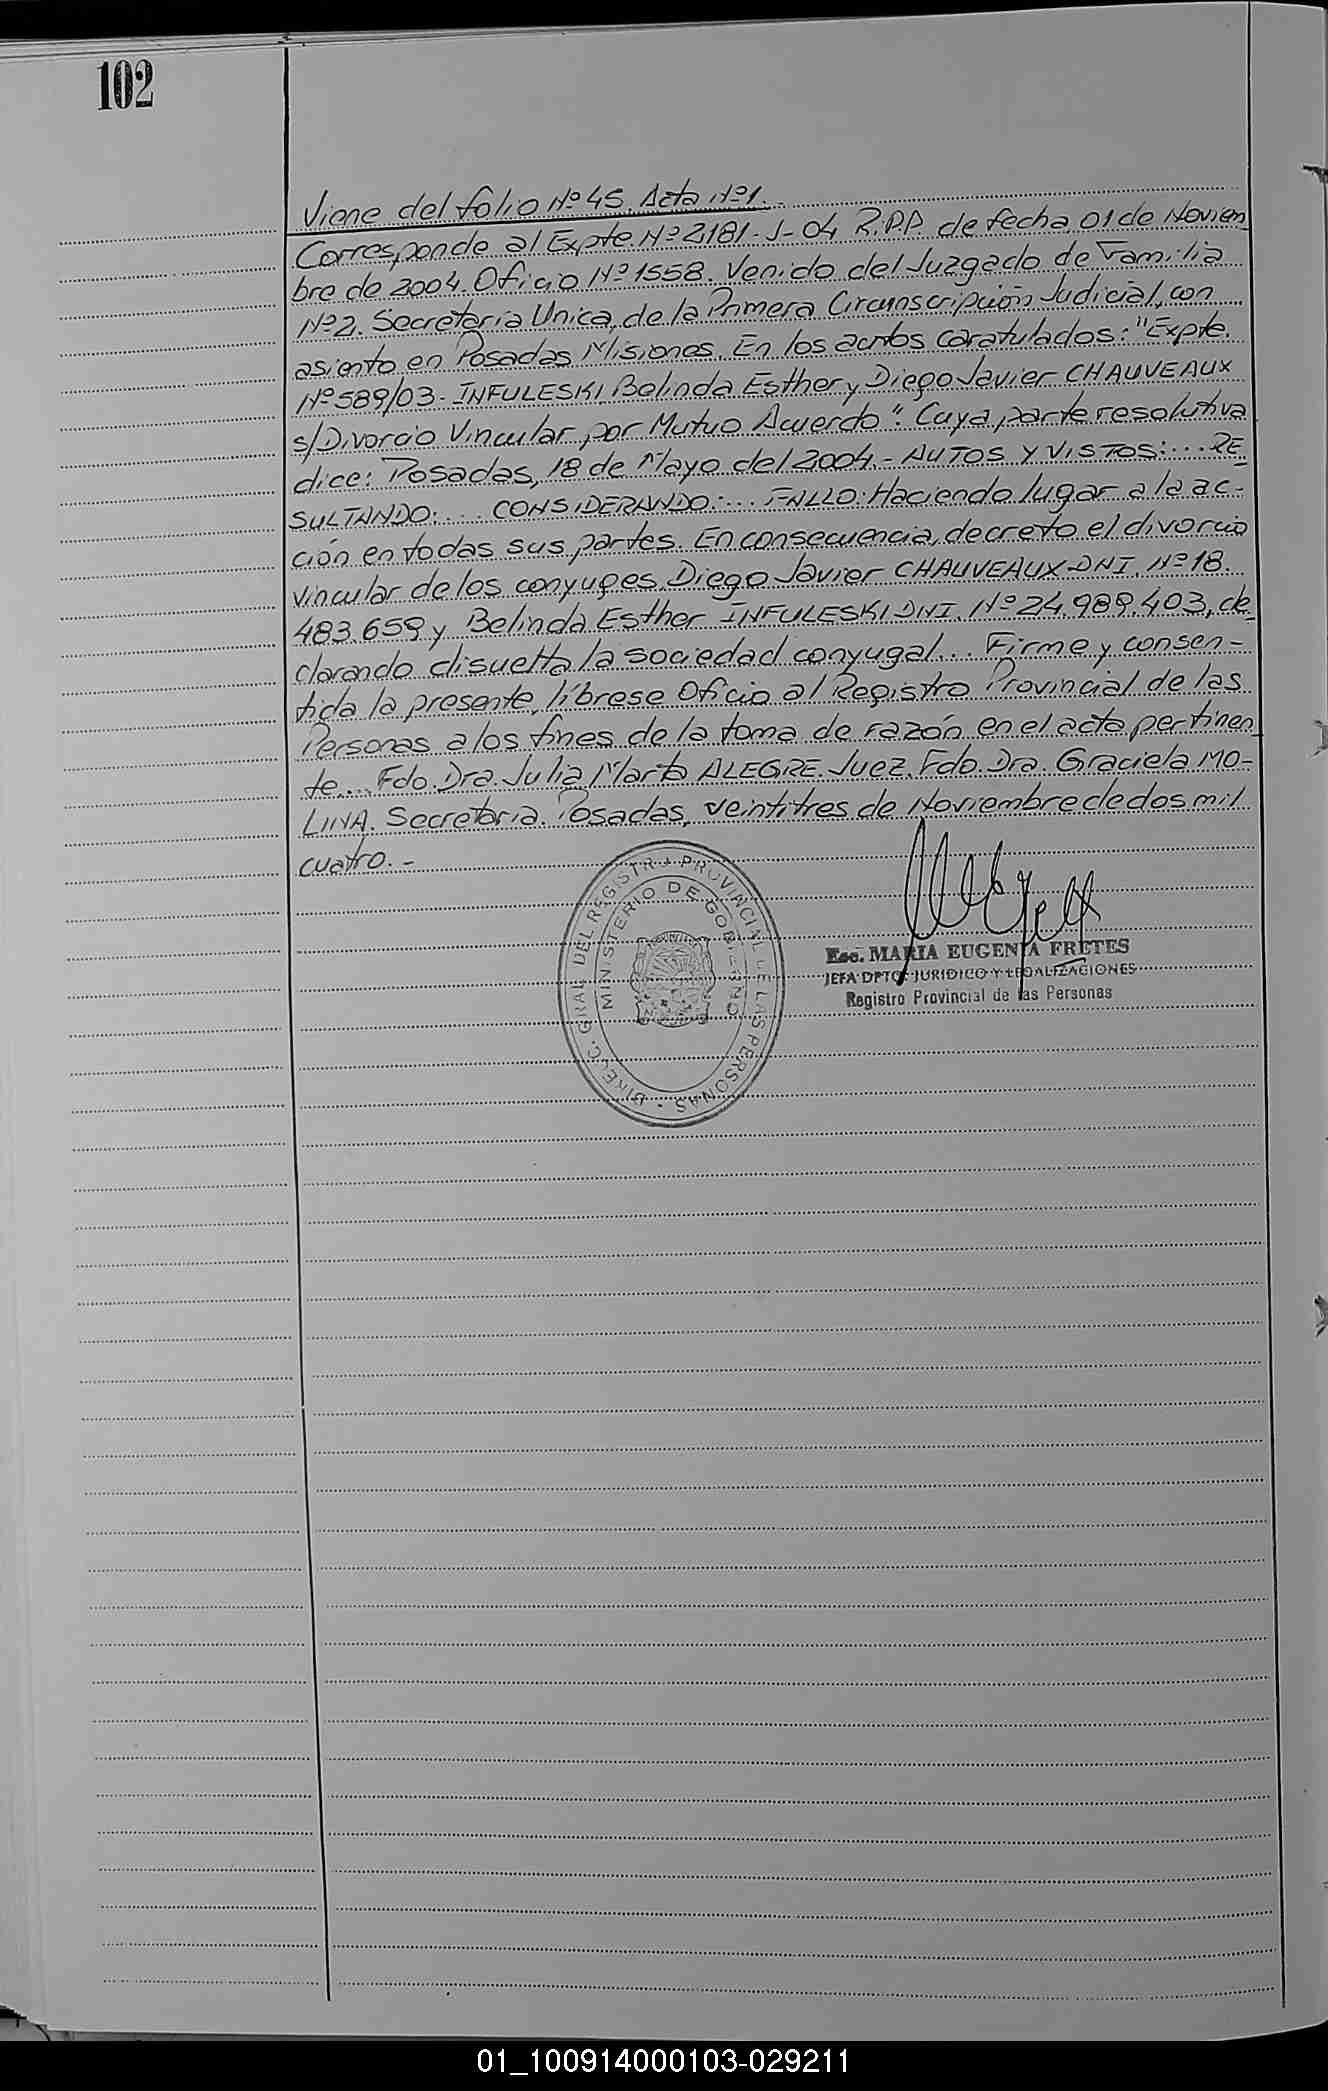 102
Viene del folio Nº 45. Acta Nº 1. -
Corresponde al Expte. Nº 2181-J-04 R.P.P. de fecha 01 de Noviem
bre de 2004. Oficio Nº 1558. Venido del Juzgado de Familia
Nº 2. Secretaría Unica, de la Primera Circunscripción Judicial, con
asiento en Posadas Misiones. En los autos caratulados: "Expte.
Nº 589/03 - INFULESKI, Belinda Esther y Diego Javier CHAUVEAUX
s/ Divorcio Vincular por Mutuo Acuerdo". Cuya parte resolutiva
dice: Posadas, 18 de Mayo del 2004.- AUTOS Y VISTOS:... RE
SULTANDO:... CONSIDERANDO:... FALLO: Haciendo lugar a la ac-
ción en todas sus partes. En consecuencia, decreto el divorcio
vincular de los conyuges Diego Javier CHAUVEAUX-DNI. Nº 18.
483.659 y Belinda Esther INFULESKI DNI. Nº 24.989.403, de
clarando disuelta la sociedad conyugal... Firme y consen-
tida la presente, líbrese Oficio al Registro Provincial de las
Personas a los fines de la toma de razón en el acta pertinen
te.... Fdo. Dra. Julia Marta ALEGRE. Juez. Fdo. Dra. Graciela MO-
LINA. Secretaria. Posadas, veintitres de Noviembre de dos mil
cuatro. -
DIREC. GRAL. DEL REGISTRO PROVINCIAL DE LAS PERSONAS -
MINISTERIO DE GOBIERNO
Esc. MARIA EUGENIA FRETES
JEFA DPTO. JURIDICO Y LEGALIZACIONES
Registro Provincial de las Personas
01_100914000103-029211